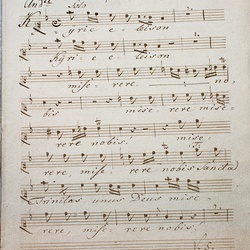 And.te Solo
Kyrie eleison
Kyrie eleison
miserere no,
bis miserere mise
rere nobis. mise,
rere, miserere nobis Sancta
Trinitas unus Deus mise,
rere, miserere nobis.